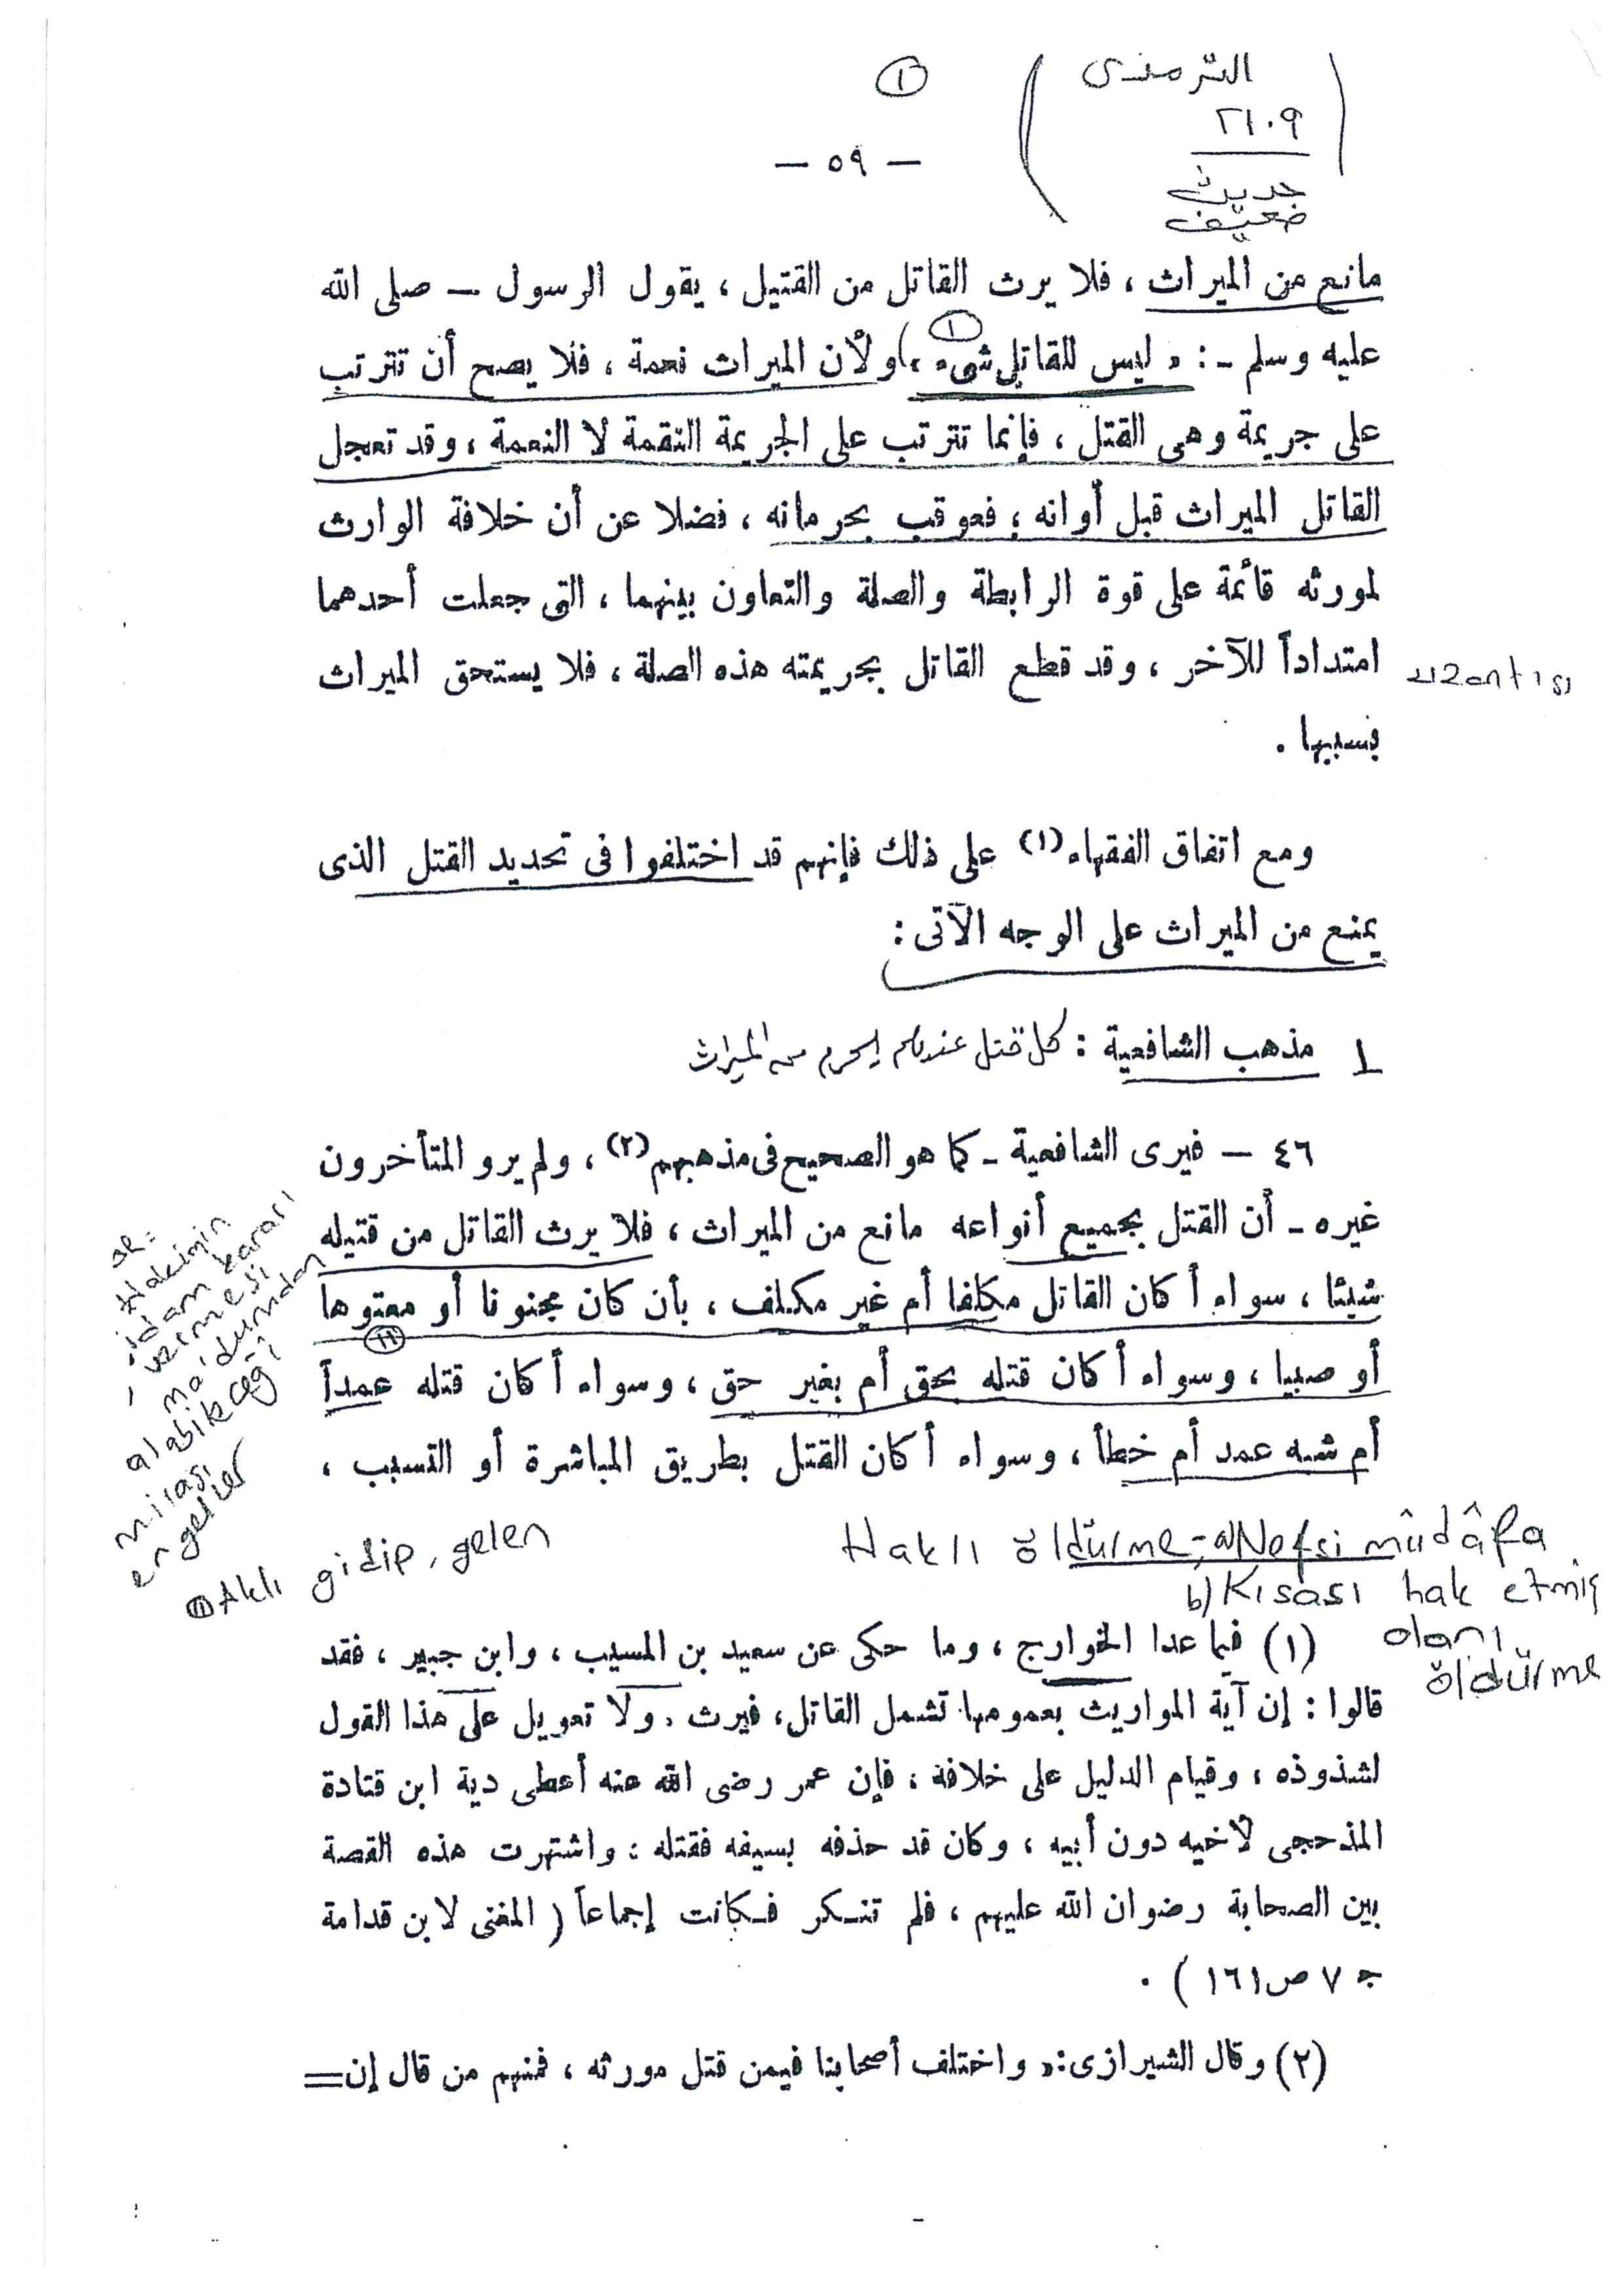 ١
الترمذى
٢١٠٩
حديث
ضعيف
— ٥٩ —
مانع من الميراث ، فلا يرث القاتل من القتيل ، يقول الرسول — صلى الله
عليه وسلم - : « ليس للقاتل شىء » ، ولأن الميراث نعمة ، فلا يصح أن تترتب
على جريمة وهى القتل ، فإنما تترتب على الجريمة النقمة لا النعمة ، وقد تعجل
القاتل الميراث قبل أوانه ؛ فعوقب بحرمانه ، فضلا عن أن خلافة الوارث
لمورثه قائمة على قوة الرابطة والصلة والتعاون بينهما ، التى جعلت أحدهما
امتداداً للآخر ، وقد قطع القاتل بجريمته هذه الصلة ، فلا يستحق الميراث
uzantısı
بسببها .
ومع اتفاق الفقهاء (١) على ذلك فإنهم قد اختلفوا فى تحديد القتل الذى
يمنع من الميراث على الوجه الآتى :
١ مذهب الشافعية : كل قتل عندهم يحرم من الميراث
٤٦ — فيرى الشافعية - كما هو الصحيح فى مذهبهم (٢) ، ولم يرو المتأخرون
غيره - أن القتل بجميع أنواعه مانع من الميراث ، فلا يرث القاتل من قتيله
شيئا ، سواء أكان القاتل مكلفا أم غير مكلف ، بأن كان مجنونا أو معتوها
أو صبيا ، وسواء أكان قتله بحق أم بغير حق ، وسواء أكان قتله عمداً
أم شبه عمد أم خطأ ، وسواء أكان القتل بطريق المباشرة أو التسبب ،
Hakimin
idam kararı
vermesi
maidumdan
alabileceği
mirası
engeller
Aklı gidip, gelen
Haklı öldürme; a) Nefsi müdâfa
b) Kısası hak etmiş
olanı
öldürme
(١) فيما عدا الخوارج ، وما حكى عن سعيد بن المسيب ، وابن جبير ، فقد
قالوا : إن آية المواريث بعمومها تشمل القاتل ، فيرث . ولا تعويل على هذا القول
لشذوذه ، وقيام الدليل على خلافة ، فإن عمر رضى الله عنه أعطى دية ابن قتادة
المذحجى لاخيه دون أبيه ، وكان قد حذفه بسيفه فقتله : واشتهرت هذه القصة
بين الصحابة رضوان الله عليهم ، فلم تنكر فكانت إجماعاً ( المغنى لابن قدامة
ج ٧ ص ١٦١ ) .
(٢) وقال الشيرازى : « واختلف أصحابنا فيمن قتل مورثه ، فمنهم من قال إن =